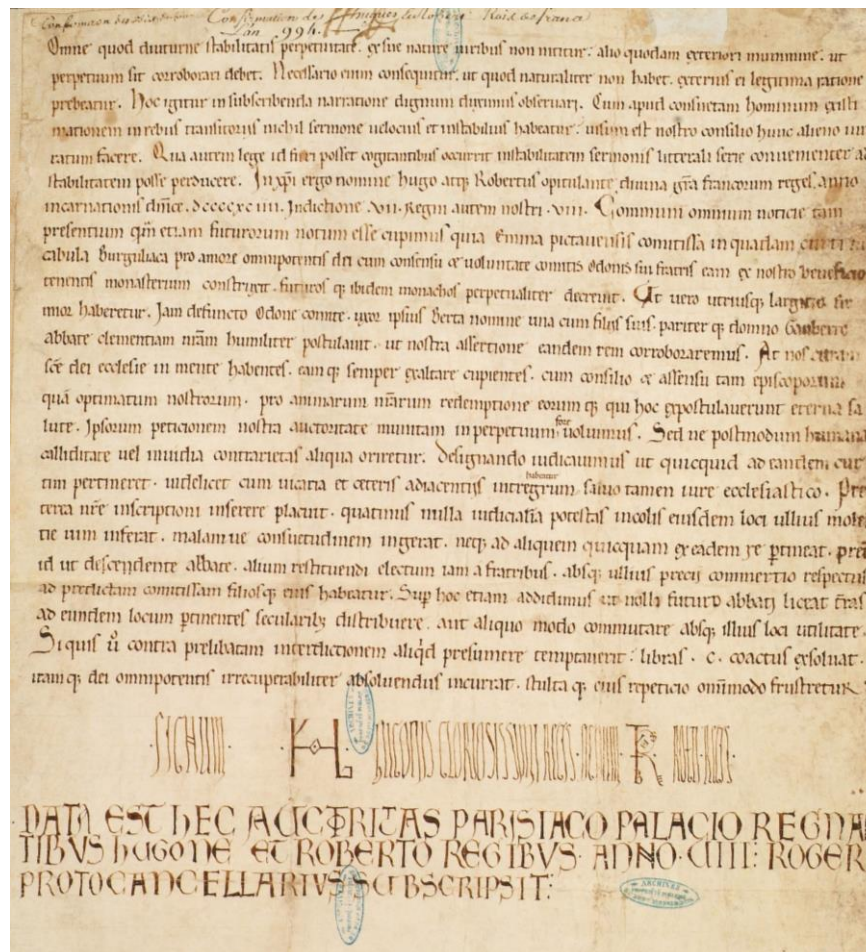 Confirmation des Hugues & Robert Rois de france
L'an 994.
Omne quod diuturne stabilitatis perpetuitate. ex sue nature uiribus non nititur. alio quodam exteriori munimine. ut
perpetuum sit corroborari debet. Necessario enim consequitur. ut quod naturaliter non habet. exterius ei legitima ratione
prebeatur. Hoc igitur in subscribenda narratione dignum duximus obseruari. Cum apud consuetam hominum existi
mationem in rebus transitoriis nichil sermone uelocius et instabilius habeatur: uisum est nostro consilio hunc alieno
ratum facere. Qua autem lege id fieri posset cogitantibus occurrit instabilitatem sermonis litterali serie conuenienter ad
stabilitatem posse perducere. In xp̄i ergo nomine hugo atq; Robertus opitulante diuina gr̄a francorum reges. anno
incarnationis dn̄ice. dccccxciiii. Indictione .vii. Regni autem nostri .viii. Communi omnium noticie tam
presentium qm̄ etiam futurorum notum esse cupimus quia Emma pictauensis comitissa in quadam
cabula Burguliaca pro amore omnipotentis dei cum consensu & uoluntate comitis Odonis sui fratris eam ex nostro beneficio
tenentis monasterium construxit. futuros q; ibidem monachos perpetualiter decreuit. Ut uero utriusq; largitio fir
mior haberetur. Jam defuncto Odone comite. uxor ipsius Berta nomine una cum filiis suis. pariter q; domno Gauberto
abbate clementiam nr̄am humiliter postulauit. ut nostra assertione eandem rem corroboraremus. At nos
sc̄e dei ecclesie in mente habentes. eam q; semper exaltare cupientes. cum consilio & assensu tam episcoporum
quā optimatum nostrorum. pro animarum nr̄arum redemptione eorum q; qui hoc expostulauerunt eterna sa
lute. Ipsorum peticionem nostra auctoritate munitam in perpetuum fore uolumus. Sed ne postmodum humana
calliditate uel inuidia contrarietas aliqua oriretur. designando iudicauimus ut quicquid ad eandem cur
tim pertineret. uidelicet cum uicaria et ceteris adiacentiis integrum habeatur saluo tamen iure ecclesiastico. Pre
terea nr̄e inscriptioni inserere placuit. quatinus nulla iudiciaria potestas incolis eiusdem loci ullius moles
tie uim inferat. malamue consuetudinem ingerat. neq; ad aliquem quicquam ex eadem re ptineat.
id ut descendente abbate. alium restituendi electum iam a fratribus. absq; ullius precij commertio respectus
ad predictam comitissam filiosq; eius habeatur. Sup hoc etiam addidimus ut nulli futuro abbati liceat t̄ras
ad eundem locum ptinentes secularib; distribuere. aut aliquo modo commutare absq; illius loci utilitate.
Siquis u̅ contra prelibatam interdictionem aliqd presumere temptauerit: libras .c. coactus exsoluat.
itam q; dei omnipotentis irrecuperabiliter absoluendus incurrat. stulta q; eius repeticio omīmodo frustretur
·SIGNUM· H HUGONIS GLORIOSISSIMI REGIS· R ROTBTI REGIS·
DATA EST hEC AUCTORITAS PARISIACO PALACIO REGNA
TIBVS hUGONE ET ROBERTO REGIBVS· ANNO· CIIII: ROGER
PROTOCANCELLARIVS SUBSCRIPSIT:
ARCHIVES